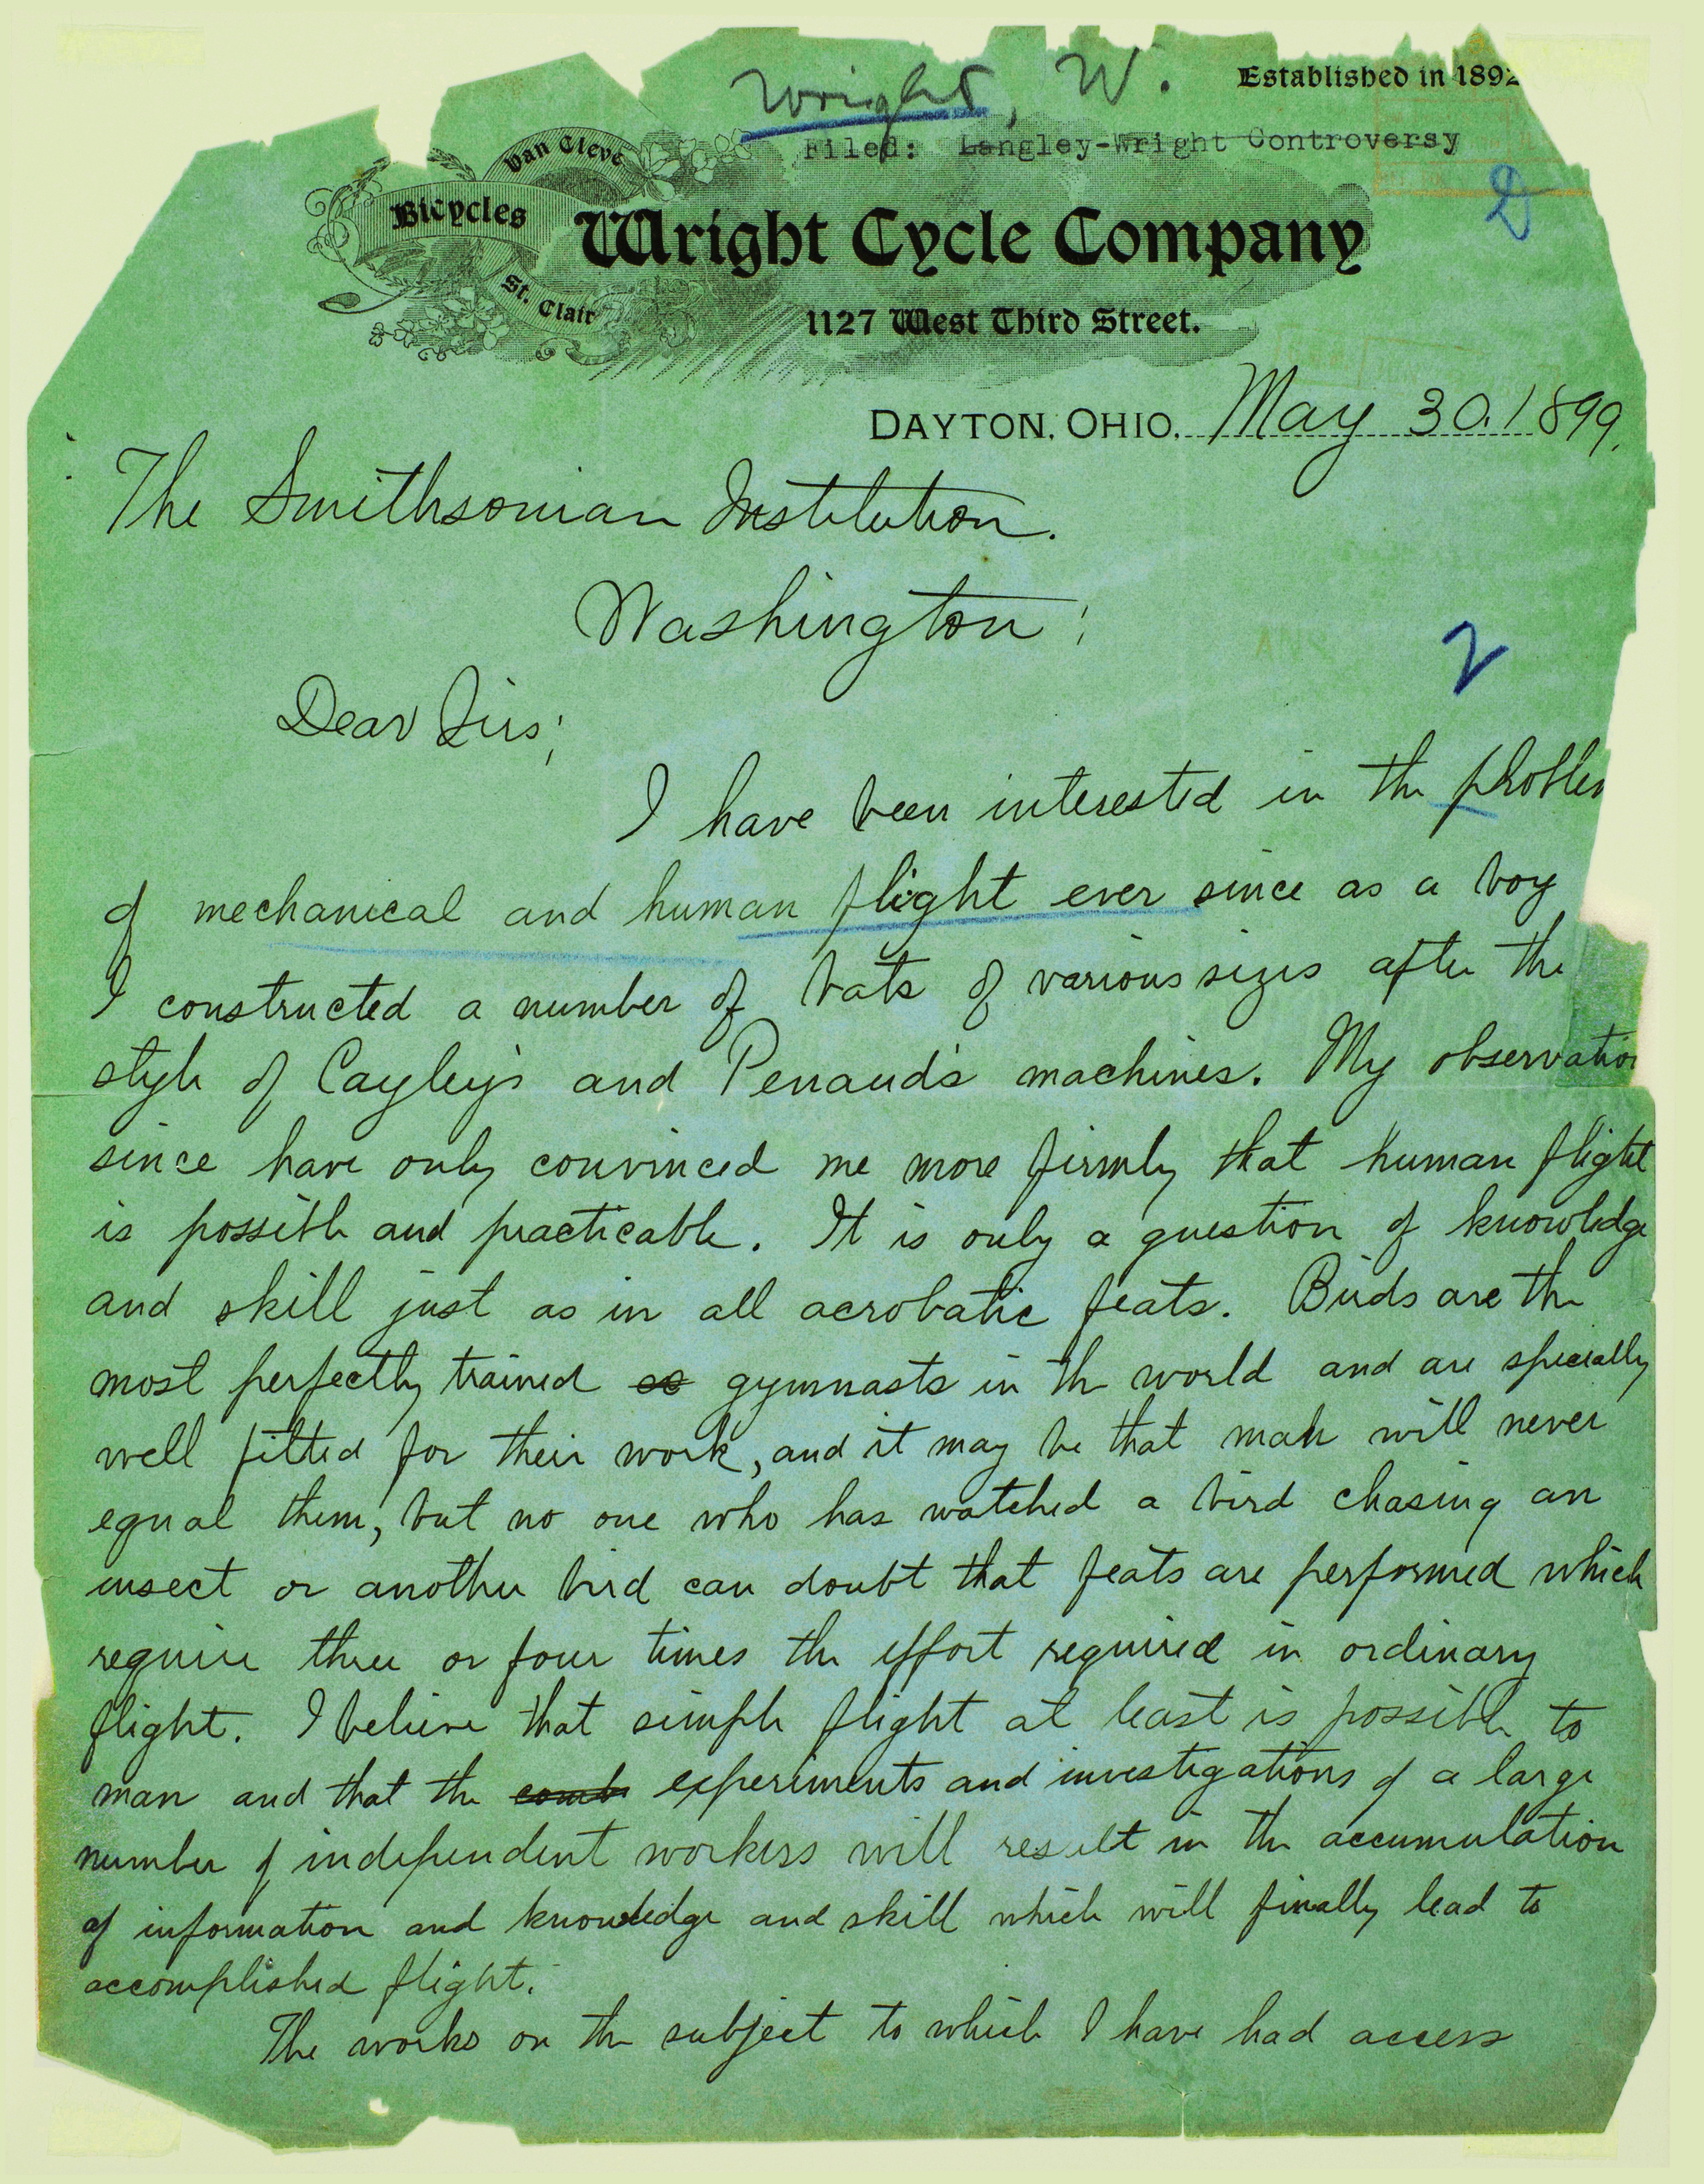 Wright, W.
Established in 1892
Filed: Langley-Wright Controversy
Van Cleve
Bicycles
St. Clair
Wright Cycle Company
1127 West Third Street.
DAYTON, OHIO, May 30, 1899.
The Smithsonian Institution.
Washington;
2
Dear Sirs;
I have been interested in the problem
of mechanical and human flight ever since as a boy
I constructed a number of bats of various sizes after the
style of Cayley's and Penaud's machines. My observation
since have only convinced me more firmly that human flight
is possible and practicable. It is only a question of knowledge
and skill just as in all acrobatic feats. Birds are the
most perfectly trained gymnasts in the world and are specially
well fitted for their work, and it may be that man will never
equal them, but no one who has watched a bird chasing an
insect or another bird can doubt that feats are performed which
require three or four times the effort required in ordinary
flight. I believe that simple flight at least is possible to
man and that the comb experiments and investigations of a large
number of independent workers will result in the accumulation
of information and knowledge and skill which will finally lead to
accomplished flight.
The works on the subject to which I have had access